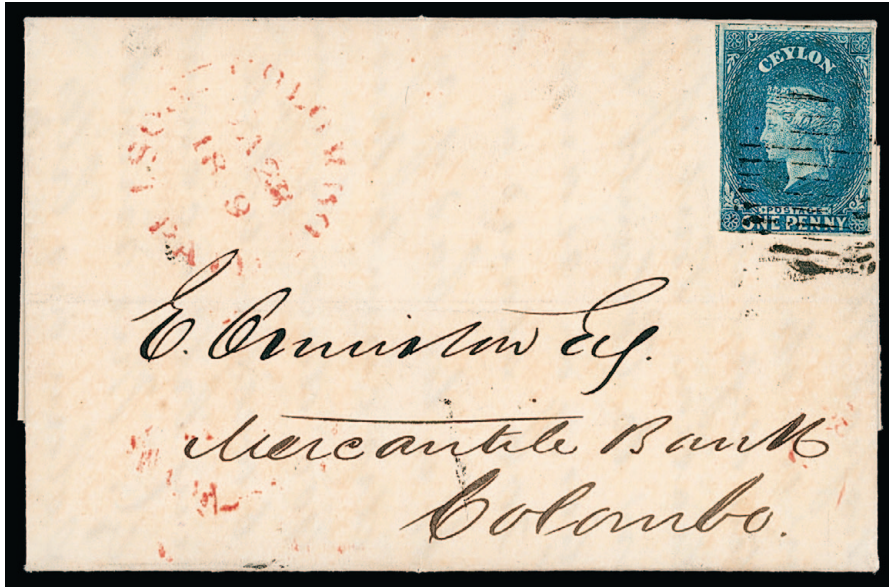 CEYLON
POSTAGE
ONE PENNY
COLOMBO
PAID
E. Ormiston Esq.
Mercantile Bank
Colombo.